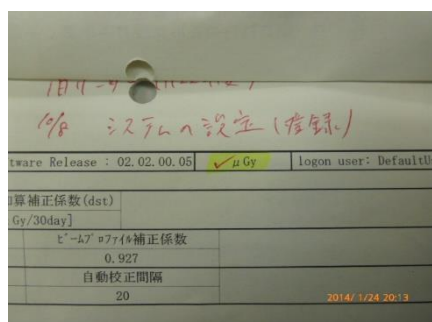 10/8 システムの設定(登録)
tware Release : 02.02.00.05 ✓μGy logon user: DefaultU
算補正係数(dst)
Gy/30day]
ビームプロファイル補正係数
0.927
自動校正間隔
20
2014/ 1/24 20:13